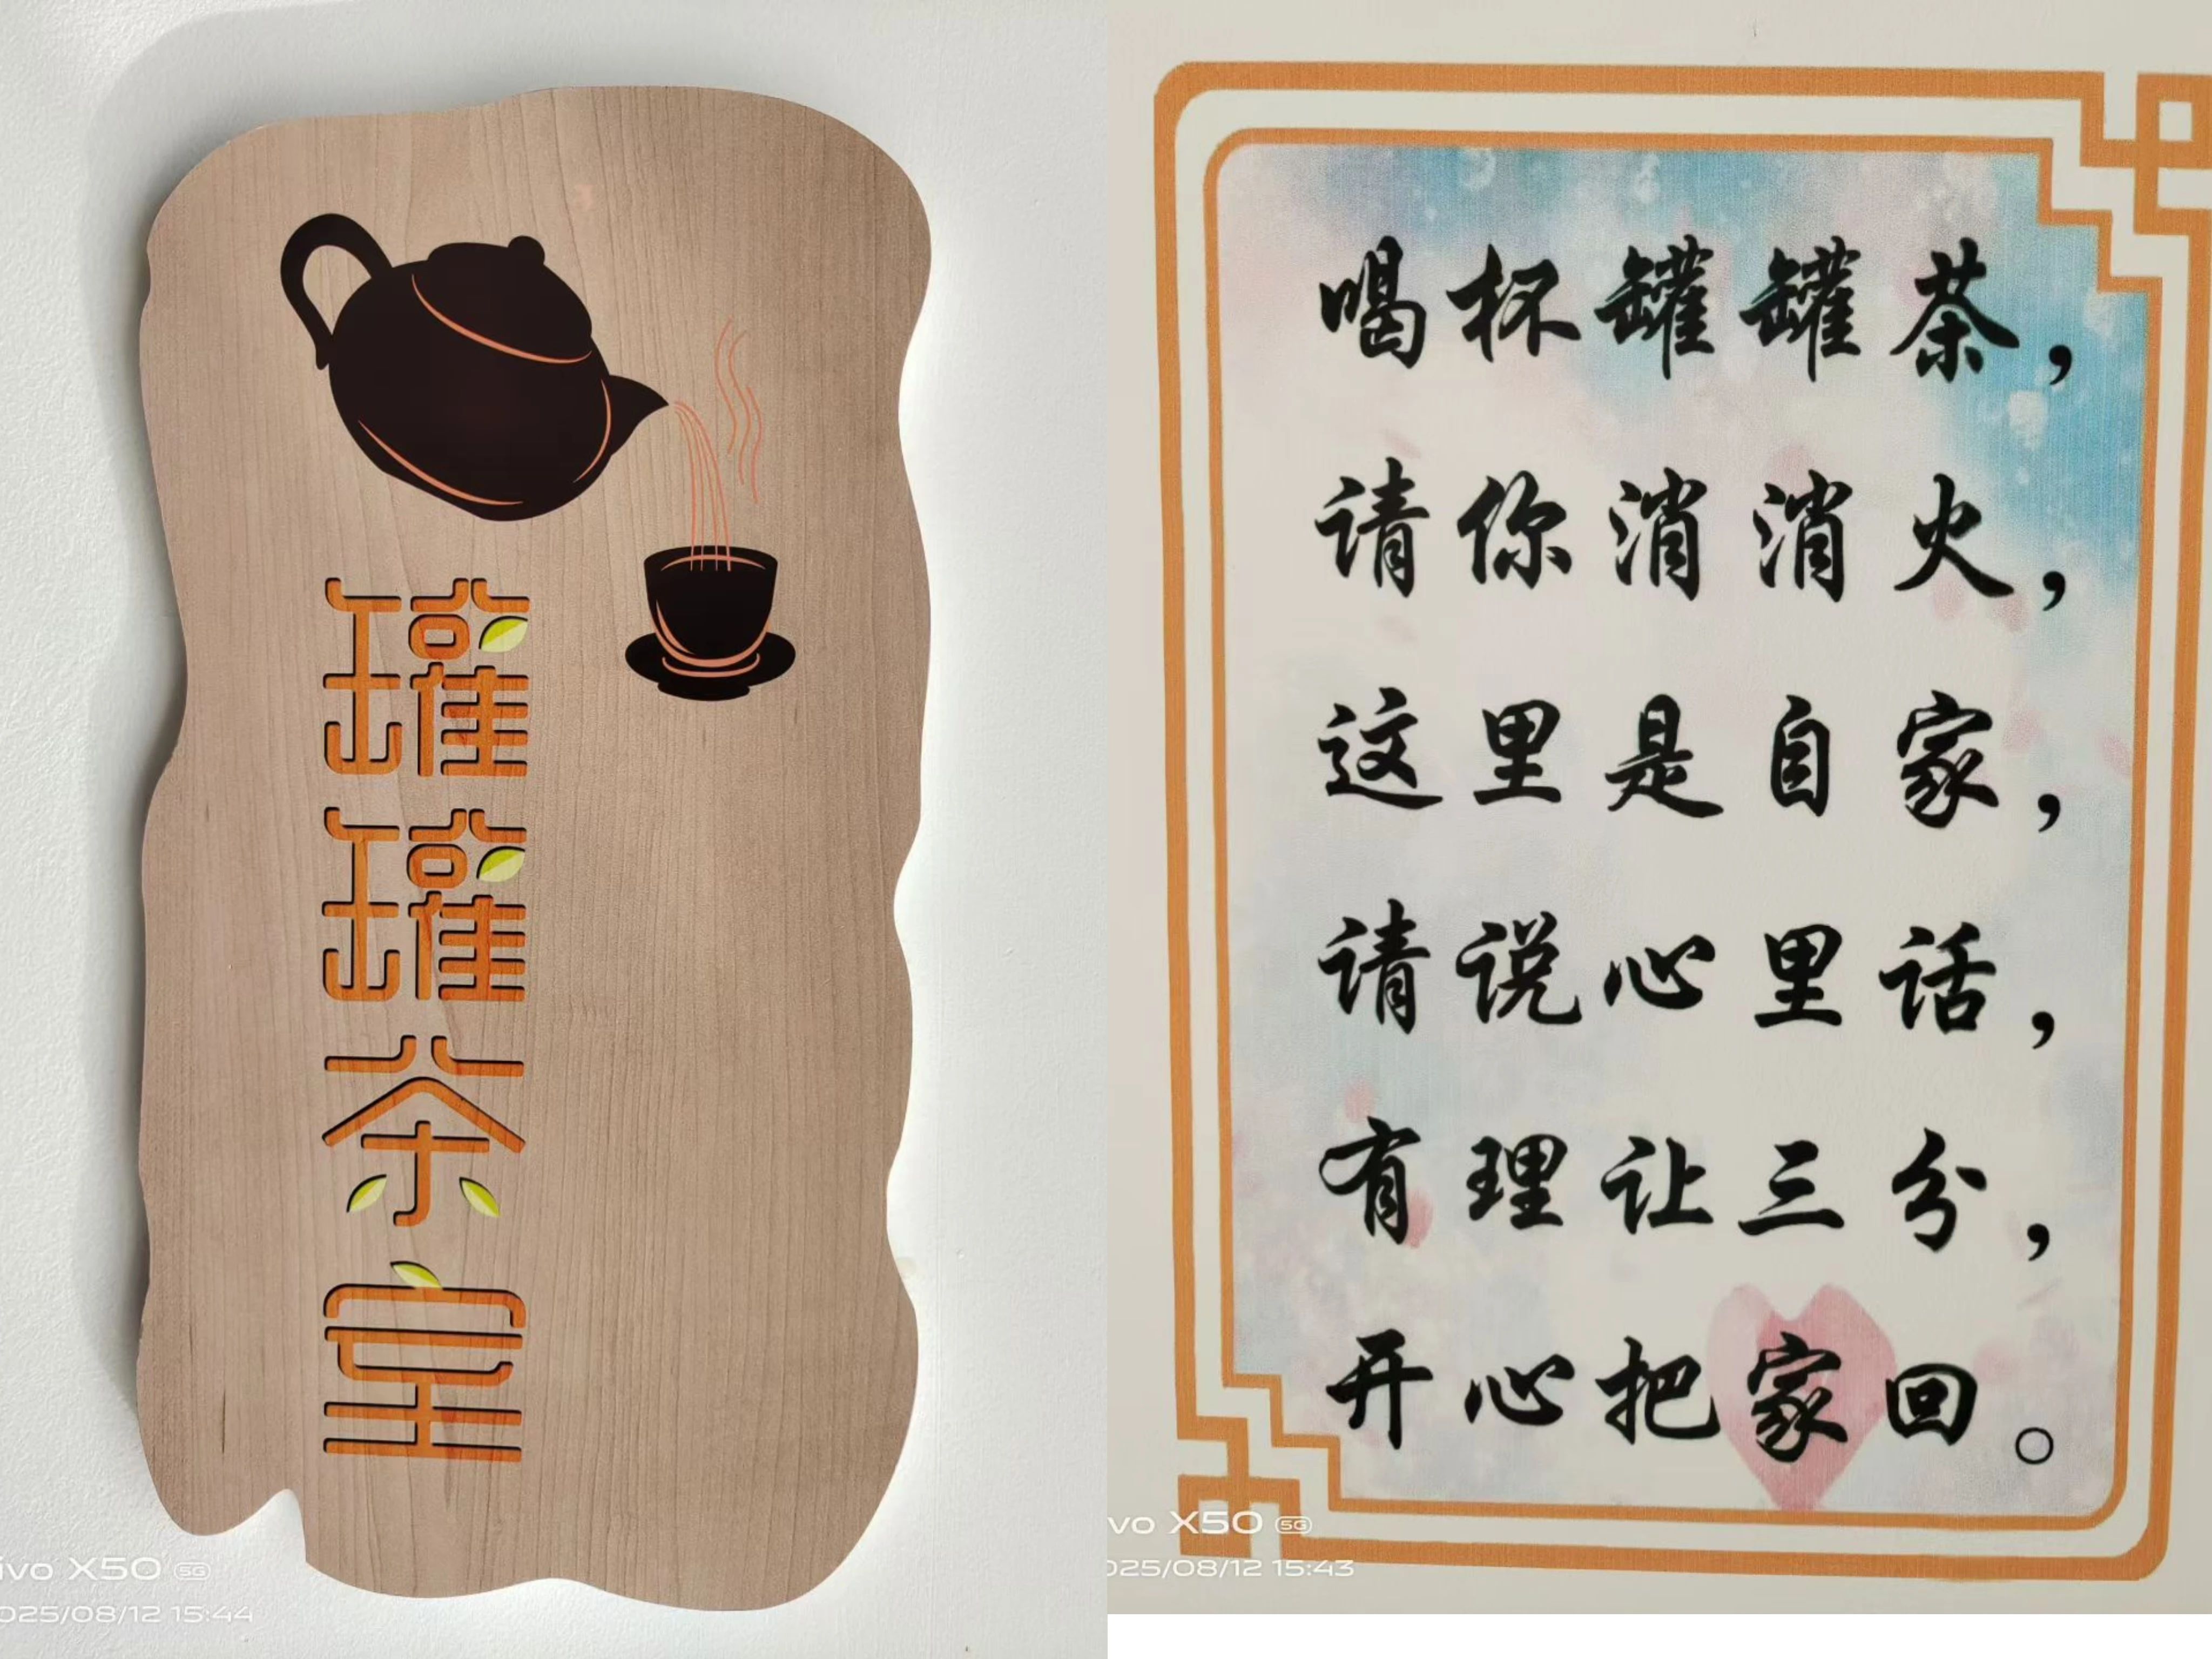 罐罐茶室
vivo X50 5G
2025/08/12 15:44
喝杯罐罐茶，
请你消消火，
这里是自家，
请说心里话，
有理让三分，
开心把家回。
vo X50 5G
025/08/12 15:43